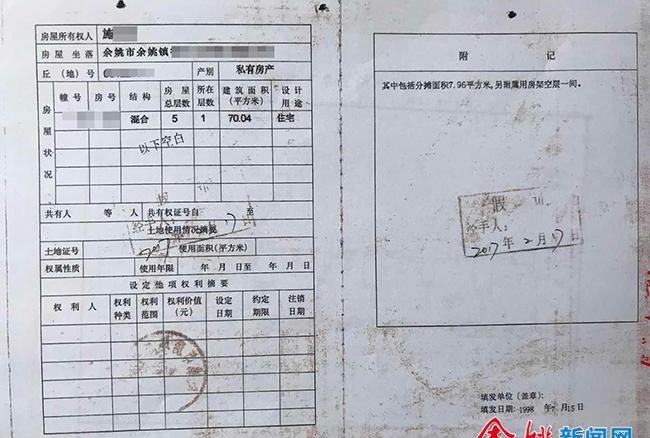 房屋所有权人 施
房屋坐落 余姚市余姚镇
丘(地)号 产别 私有房产
房屋状况
幢号 房号 结构 房屋总层数 所在层数 建筑面积(平方米) 设计用途
混合 5 1 70.04 住宅
以下空白
共有人 等 人 共有权证号自 至
土地使用情况摘要
土地证号 使用面积(平方米)
权属性质 使用年限 年 月 日至 年 月 日
设定他项权利摘要
权利人 权利种类 权利范围 权利价值(元) 设定日期 约定期限 注销日期
附记
其中包括分摊面积7.96平方米,另附属用房架空层一间。
假
经手人:
2017年2月17日
填发单位(盖章):
填发日期:1998年7月15日
余姚新闻网